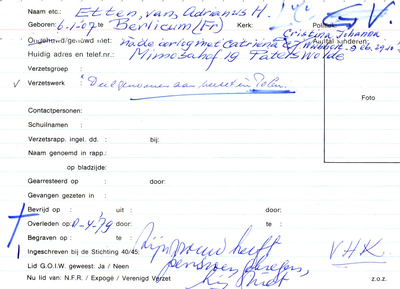 Naam etc.: Etten, van, Adrianus H. G.V.
Geboren: 6-1-07 te Berlicum (Fr) Kerk: Politiek
Ongehuwd/gehuwd met: na de oorlog met Catriena Cristina Johanna
Aantal kinderen:
Huidig adres en telef.nr.: Mimosahof 19 Paterswolde
Verzetsgroep :
Verzetswerk : "Deelgenomen aan verzet in Polen."
Foto
Contactpersonen:
Schuilnaam :
Verzetsrapp. ingel. dd. : bij:
Naam genoemd in rapp.:
op bladzijde:
Gearresteerd op : door:
Gevangen gezeten in :
Bevrijd op : uit : door:
Overleden op: -4-79 door: te :
Begraven op : te :
Ingeschreven bij de Stichting 40/45: Zijn vrouw heeft
Lid G.O.I.W. geweest: Ja / Neen pensioen V.H.K.
Nu lid van: N.F.R. / Expogé / Verenigd Verzet hij niet z.o.z.